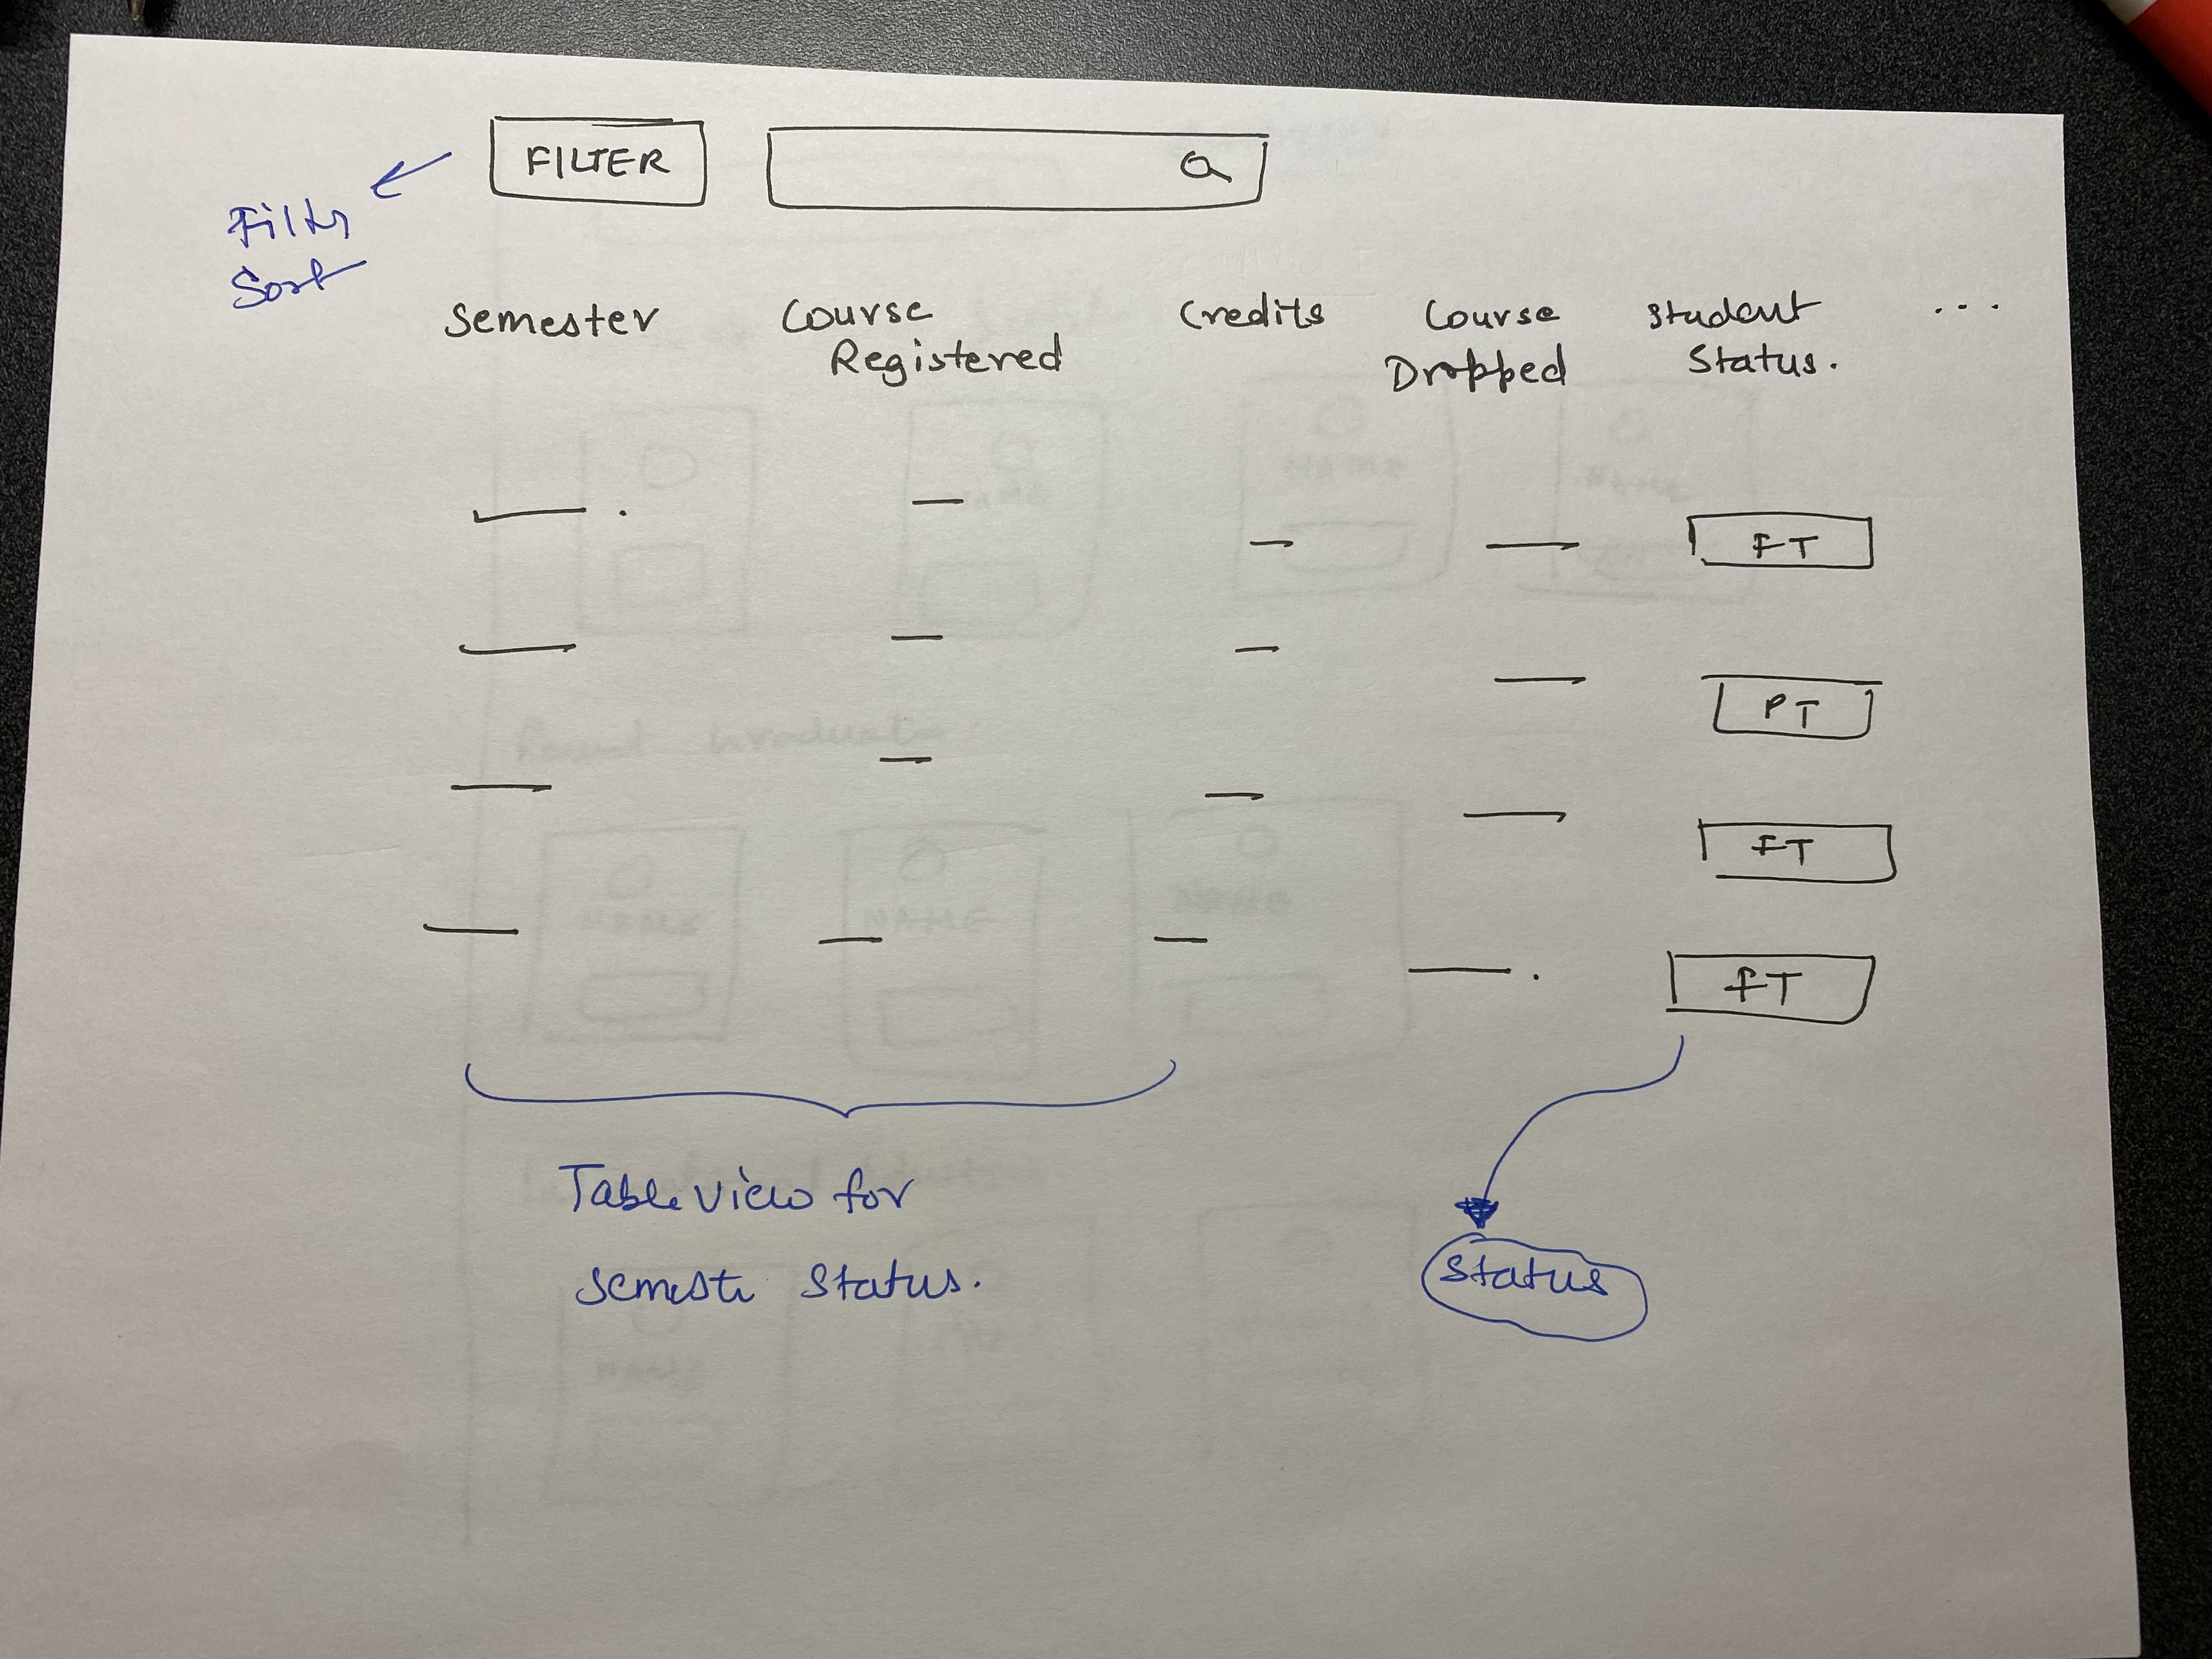 Filter
Sort
FILTER
Semester
Course
Registered
Credits
Course
Dropped
Student
Status.
...
FT
PT
FT
FT
Table view for
Semester Status.
Status